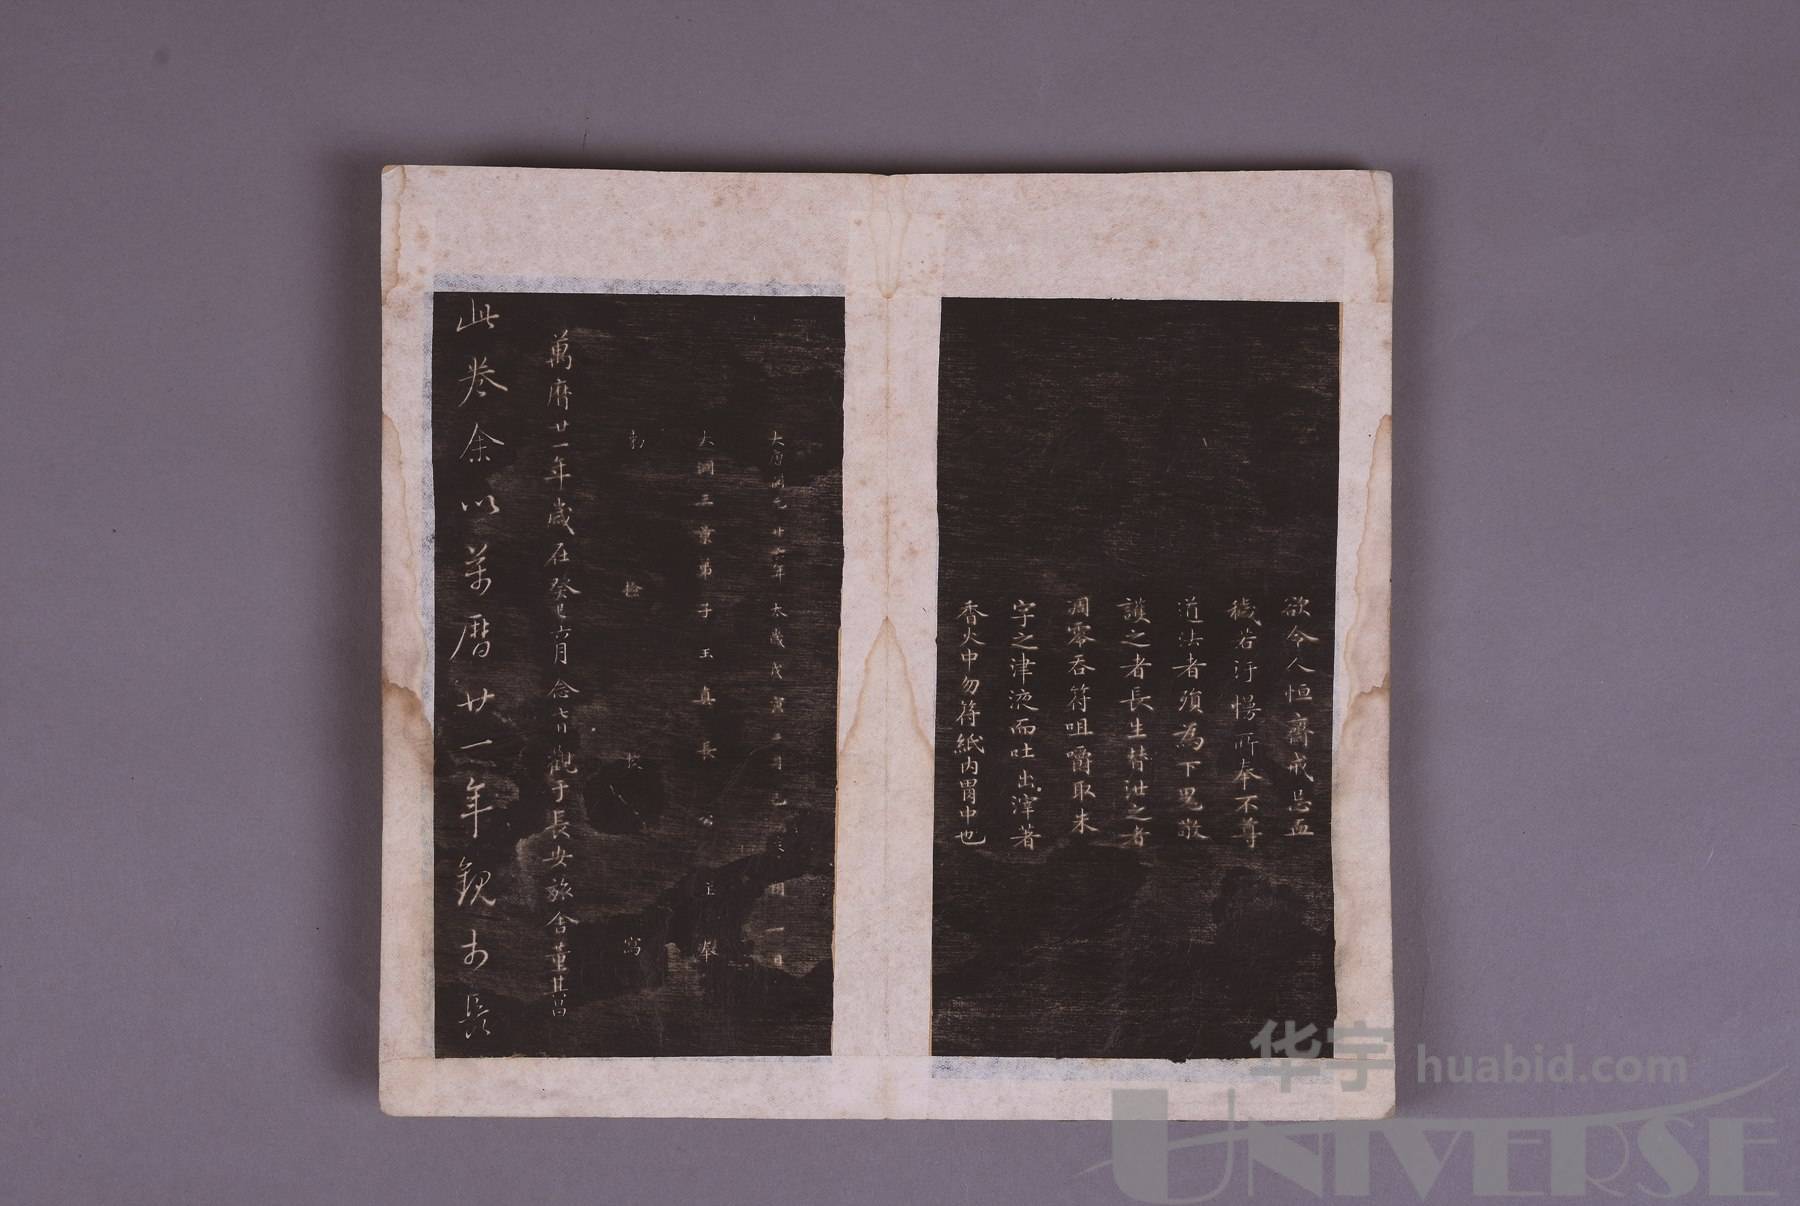 欲令人恒齋戒忌血
穢若汙慢所奉不尊
道法者須為下鬼敬
護之者長生替泄之者
凋零吞符咀嚼取朱
字之津液而吐出滓著
香火中勿符紙內胃中也
大唐開元廿六年太歲戊寅二月己 朔一日
大洞三景弟子玉真長公主奉
勅檢校寫
萬曆廿一年歲在癸巳六月念 觀于長安旅舍董其昌
此卷余以萬曆廿一年觀於長
华宇 huabid.com
UNIVERSE